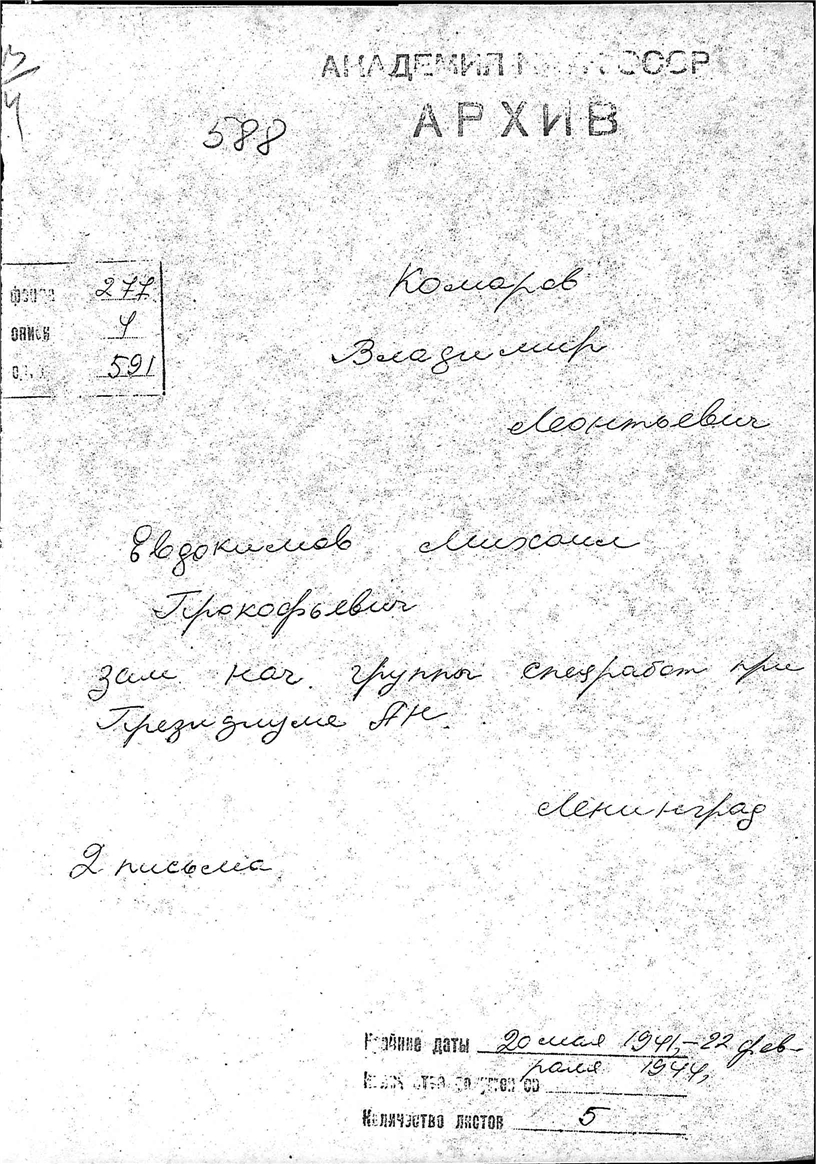 АКАДЕМИЯ НАУК СССР
АРХИВ
588
фонд 277
опись 4
591
Комаров
Владимир
Леонтьевич
Евдокимов Михаил
Прокофьевич
зам нач. группы спецработ при
Президиуме АН.
Ленинград
2 письма
Крайние даты 20 мая 1941, – 22 фев-
раля 1944,
Количество документов
Количество листов 5